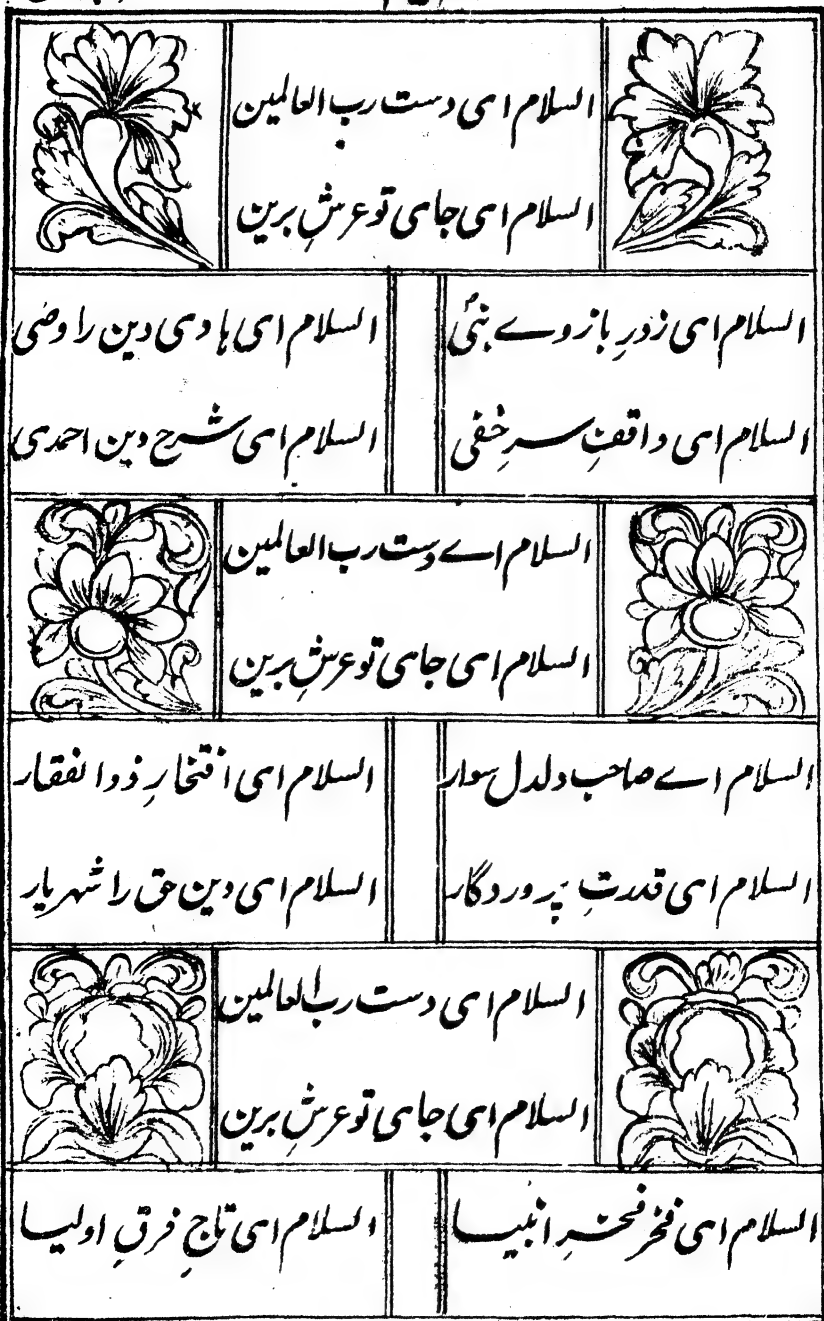 السلام ای دست رب العالمین
السلام ای جای تو عرشِ برین
السلام ای زورِ بازوے نبیؐ السلام ای ہادی دین را وضی
السلام ای واقفِ سرِ خفی السلام ای شرح دین احمدی
السلام اے دست رب العالمین
السلام ای جای تو عرشِ برین
السلام اے صاحب دلدل سوار السلام ای افتخارِ ذوالفقار
السلام ای قدرتِ پروردگار السلام ای دین حق را شہریار
السلام ای دست رب العالمین
السلام ای جای تو عرشِ برین
السلام ای فخرِ فخرِ انبیا السلام ای تاجِ فرقِ اولیا